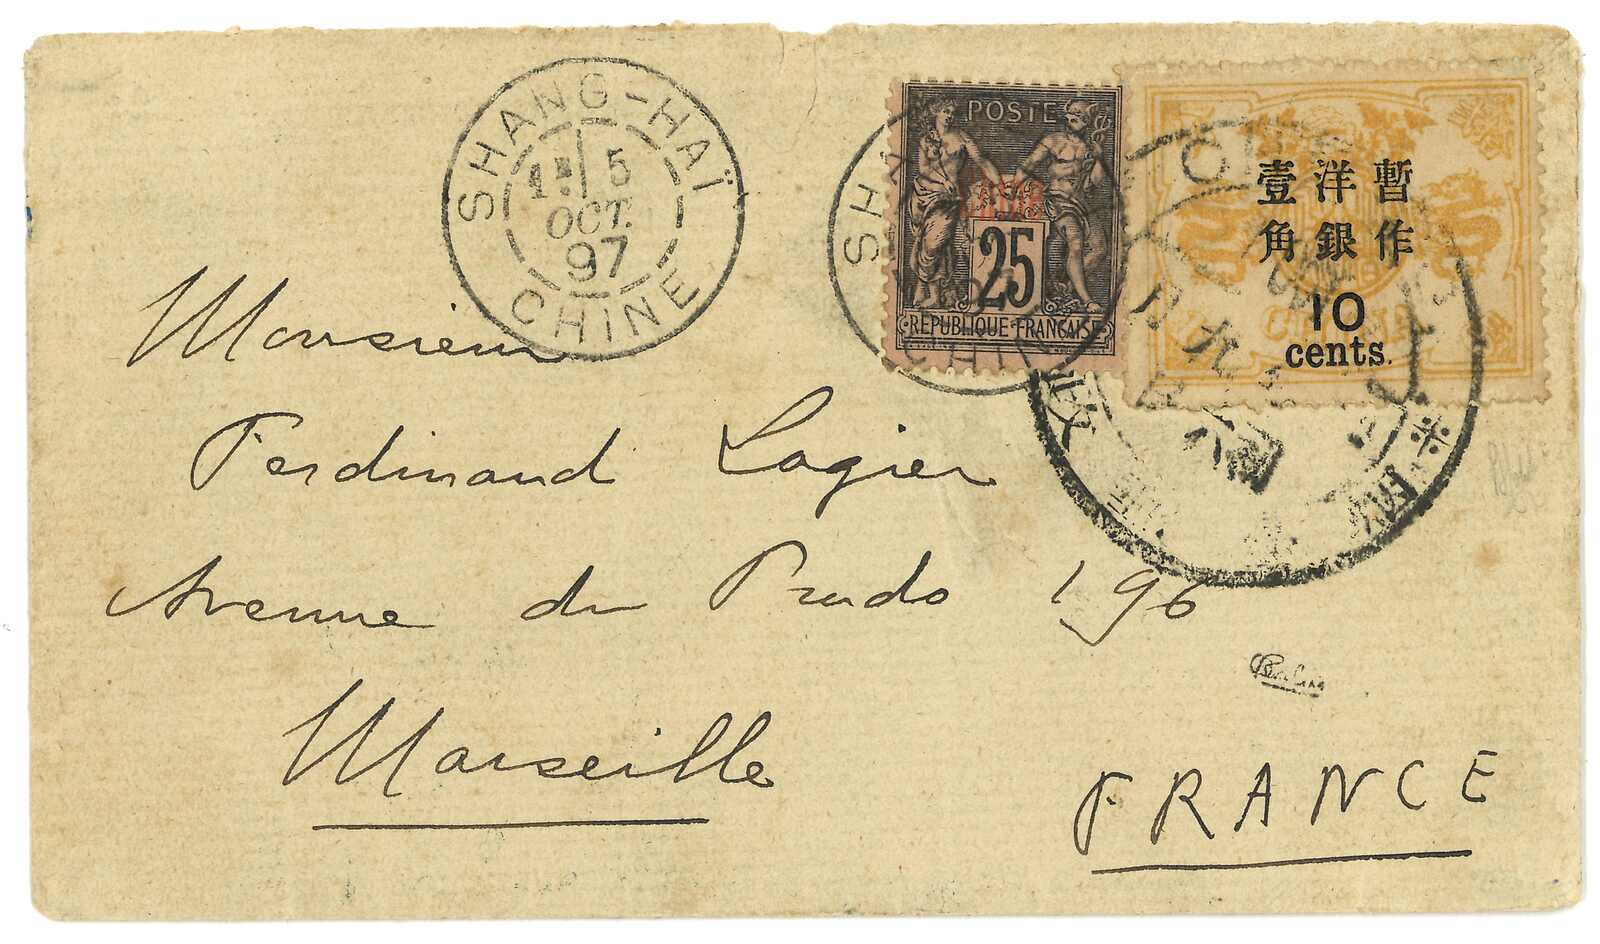 SHANG-HAÏ
5
OCT.
97
CHINE
POSTE
25
RÉPUBLIQUE FRANÇAISE
暫作
洋銀
壹角
10
cents.
Monsieur
Ferdinand Lagier
Avenue du Prado 196
Marseille
FRANCE